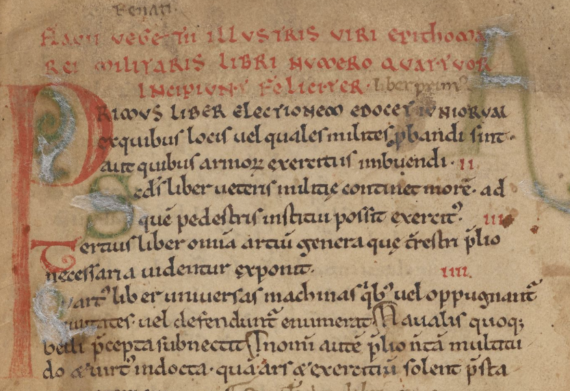 Renati.
FLAVII VEGETII ILLVSTRIS VIRI EPITHOMA
REI MILITARIS LIBRI NVMERO QVATTVOR
INCIPIVNT FELICITER. liber prim
PRIMVS LIBER ELECTIONEM EDOCET IVNIORVM
exquibus locis uel quales milites ꝓbandi sint.
aut quibus armoꝝ exercitiis imbuendi. II
Scds liber ueteris militię continet morē. ad
quē pedestris institui possit exercit. III
Tertius liber omīa artiū genera que t̄restri p̄lio
necessaria uidentur exponit. IIII.
Quart liber uniuersas machinas qb; uel oppugnant̄
ciuitates. uel defendunt̄ enumerat. Naualis quoq;
belli p̄cepta subnectit. Inomī autē p̄lio n̄ tā multitu
do & uirt indocta. quā ars & exercitiū solent p̄sta